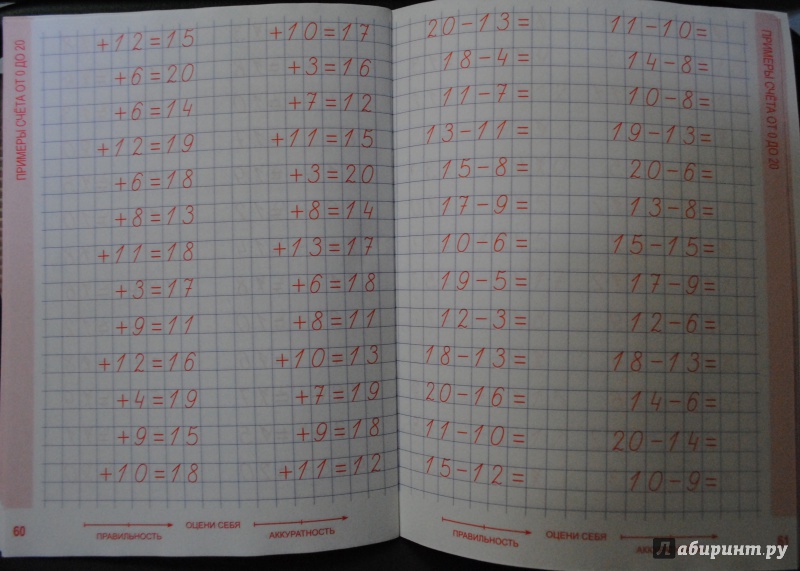 ПРИМЕРЫ СЧЁТА ОТ 0 ДО 20
+12=15
+6=20
+6=14
+12=19
+6=18
+8=13
+11=18
+3=17
+9=11
+12=16
+4=19
+9=15
+10=18
+10=17
+3=16
+7=12
+11=15
+3=20
+8=14
+13=17
+6=18
+8=11
+10=13
+7=19
+9=18
+11=12
60
ПРАВИЛЬНОСТЬ
ОЦЕНИ СЕБЯ
АККУРАТНОСТЬ
20-13=
18-4=
11-7=
13-11=
15-8=
17-9=
10-6=
19-5=
12-3=
18-13=
20-16=
11-10=
15-12=
11-10=
14-8=
10-8=
19-13=
20-6=
13-8=
15-15=
17-9=
12-6=
18-13=
14-6=
20-14=
10-9=
ПРИМЕРЫ СЧЁТА ОТ 0 ДО 20
ПРАВИЛЬНОСТЬ
ОЦЕНИ СЕБЯ
61
Лабиринт.ру